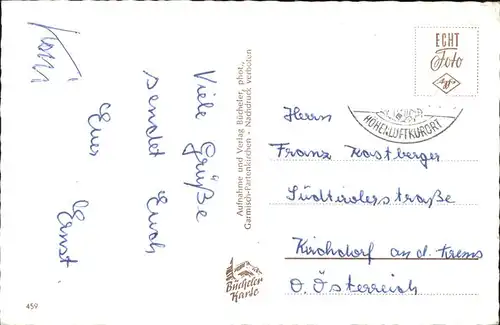 Viele Grüße
sendet Euch
Euer Ernst
Aufnahme und Verlag Bücheler, phot.,
Garmisch-Partenkirchen · Nachdruck verboten
ECHT
Foto
HÖHENLUFTKURORT
Herrn
Franz Kastberger
Südtirolerstraße
Kirchdorf an d. Krems
O. Österreich
Bücheler
Karte
459